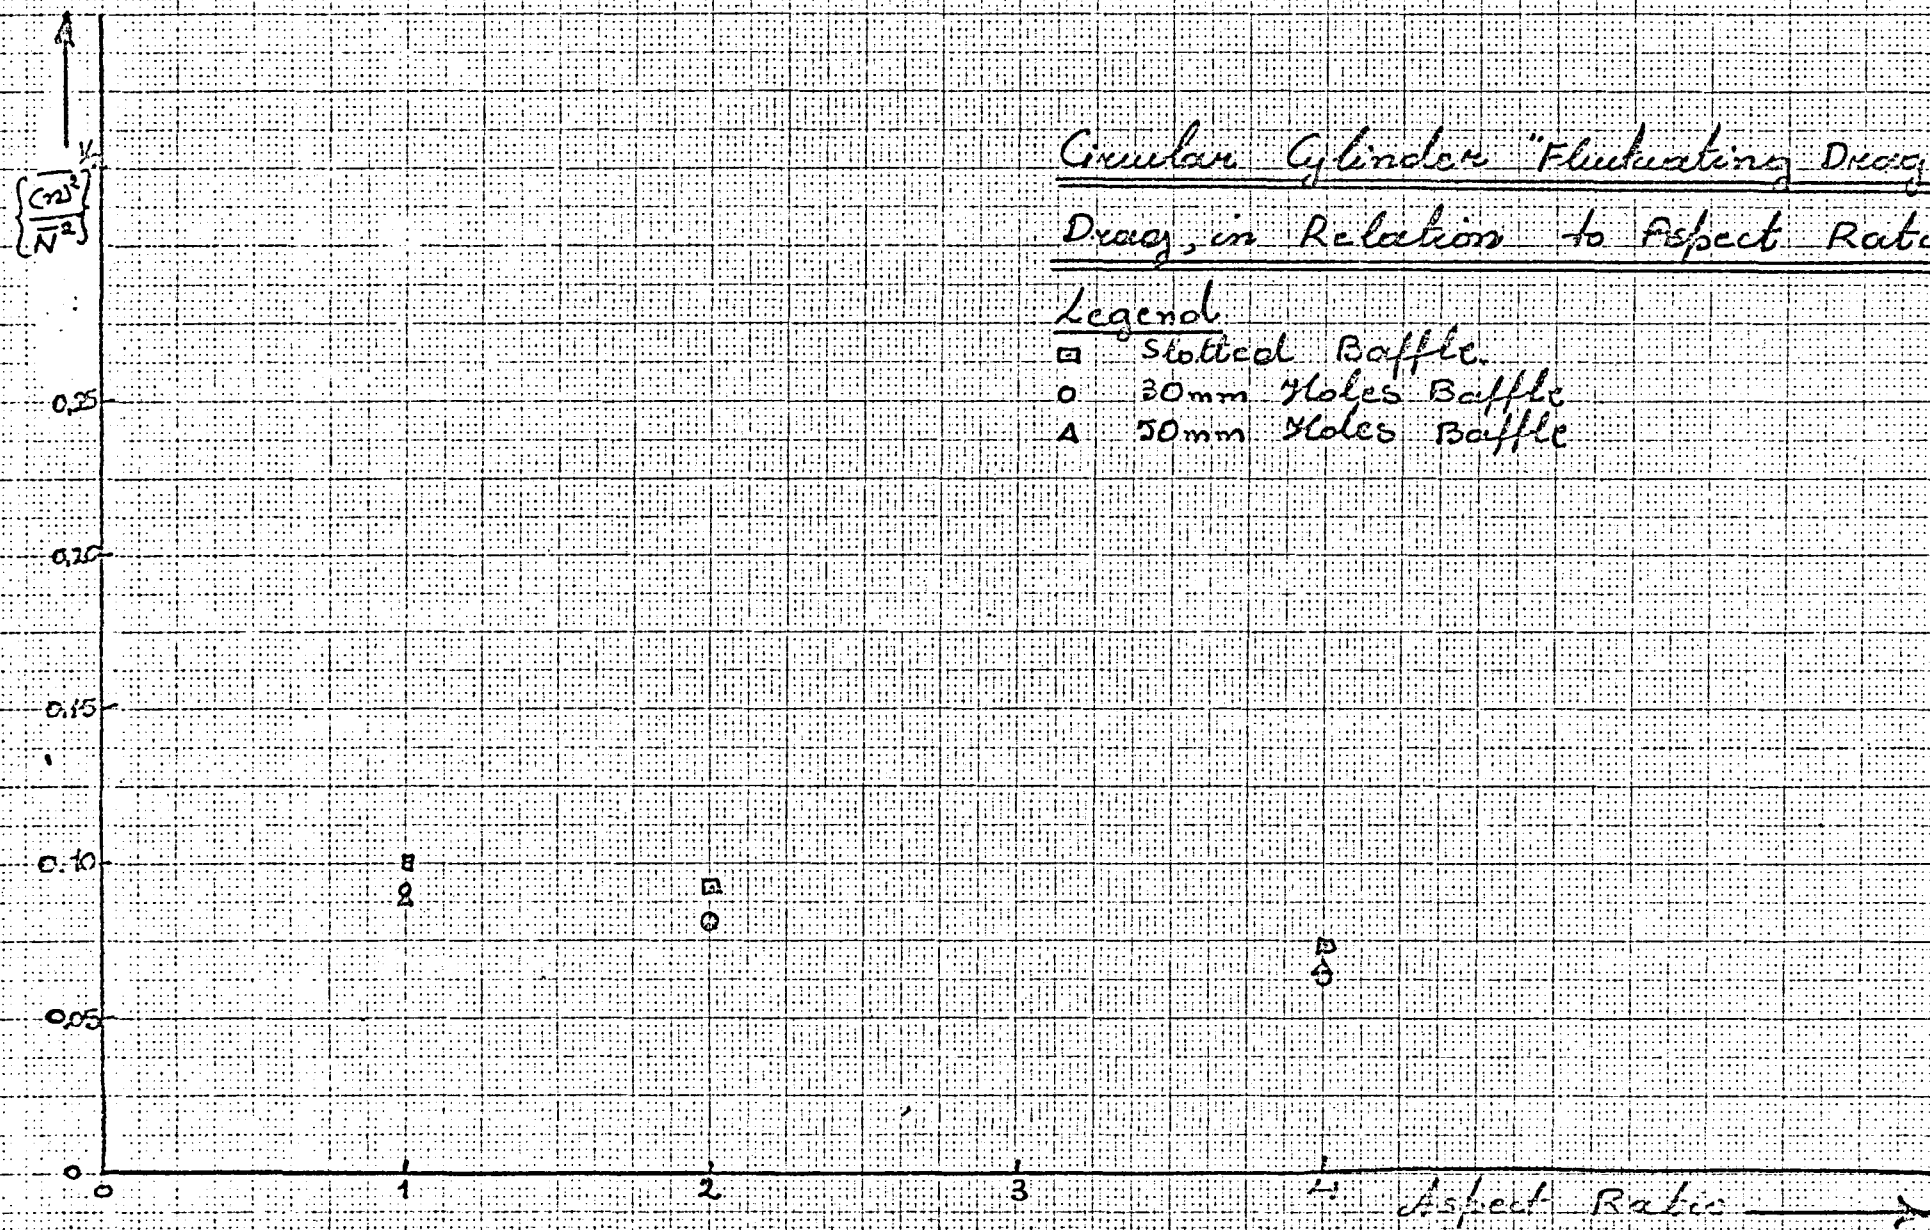 Circular Cylinder "Fluctuating Drag
Drag, in Relation to Aspect Ratio
Legend
Slotted Baffle.
30mm Holes Baffle
50mm Holes Baffle
{(n)²/N²}½
0,25
0,20
0,15
0.10
0,05
0
0 1 2 3 4
Aspect Ratio